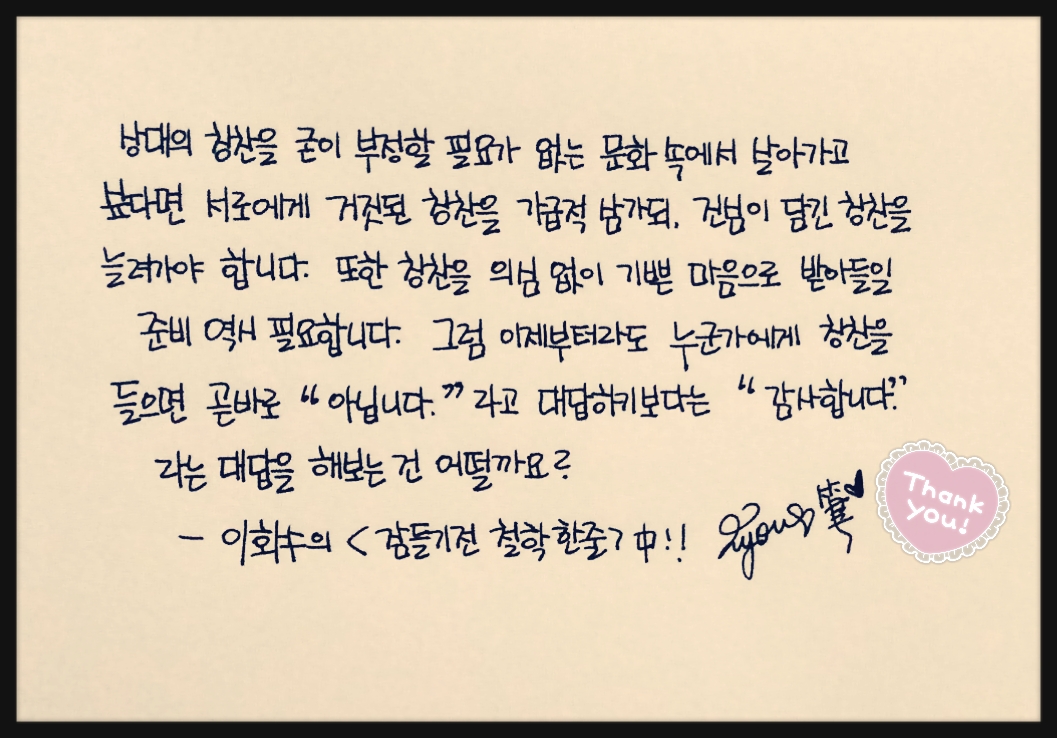 상대의 칭찬을 굳이 부정할 필요가 없는 문화 속에서 살아가고
싶다면 서로에게 거짓된 칭찬을 가급적 삼가되, 진심이 담긴 칭찬을
늘려가야 합니다. 또한 칭찬을 의심 없이 기쁜 마음으로 받아들일
준비 역시 필요합니다. 그럼 이제부터라도 누군가에게 칭찬을
들으면 곧바로 “아닙니다.” 라고 대답하기보다는 “감사합니다.”
라는 대답을 해보는 건 어떨까요?
- 이화수의 <잠들기전 철학 한줄> 中!!
Thank
you!